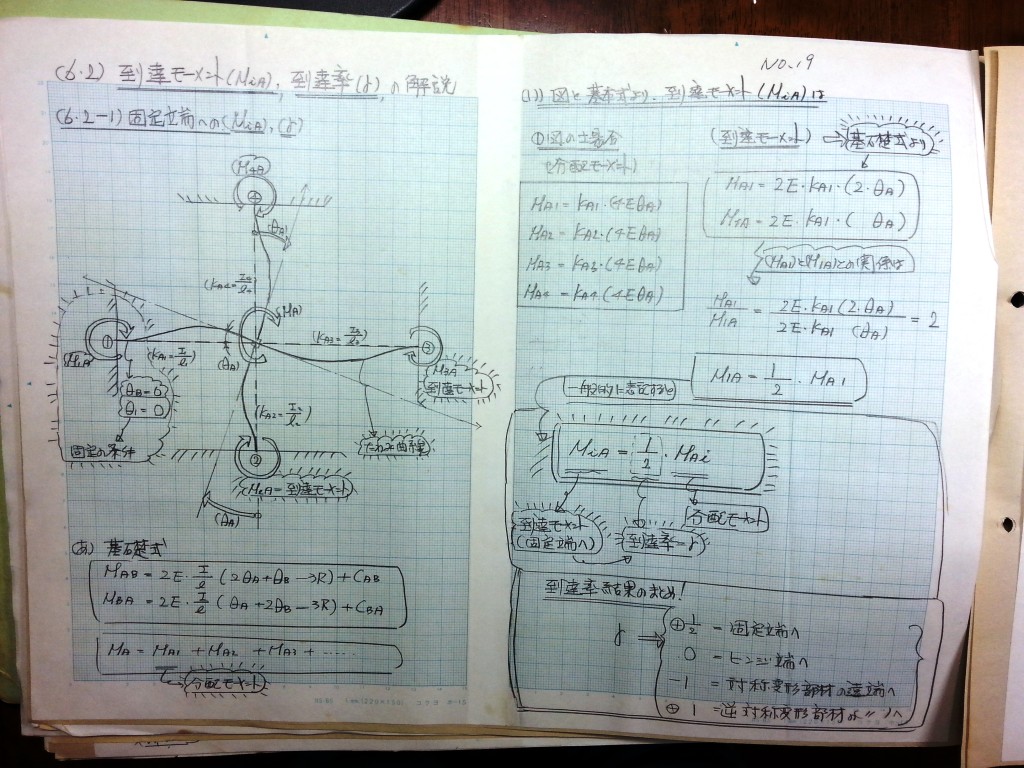 (6.2) 到達モーメント(MiA), 到達率(γ)の解説
(6.2-1) 固定端への(MiA), (γ)
M4A
④
(θA)
(KA4 = I4/l4)
MA
①
M1A
(KA1 = I1/l1)
(θA)
(KA3 = I3/l3)
③
M3A
到達モーメント
θB=0
θ1=0
固定の条件
(KA2 = I2/l2)
たわみ曲線
②
(MiA=到達モーメント)
(θA)
(あ) 基礎式
MAB = 2E・I/l (2θA+θB-3R)+CAB
MBA = 2E・I/l (θA+2θB-3R)+CBA
MA = MA1 + MA2 + MA3 + ......
分配モーメント
NO.19
(い) 図と基本式より、到達モーメント(MiA)は
①図の場合
(分配モーメント)
MA1 = KA1・(4EθA)
MA2 = KA2・(4EθA)
MA3 = KA3・(4EθA)
MA4 = KA4・(4EθA)
(到達モーメント) ⇒ 基礎式より
MA1 = 2E・KA1・(2・θA)
M1A = 2E・KA1・( θA)
(MA1)と(M1A)との関係は
MA1/M1A = 2E・KA1(2・θA)/2E・KA1 (θA) = 2
M1A = 1/2・MA1
一般的に表記すると
MiA = 1/2・MAi
到達モーメント
(固定端へ)
到達率=γ
分配モーメント
到達率結果のまとめ!
γ ⇒
⊕1/2 = 固定端へ
0 = ヒンジ端へ
-1 = 対称変形部材の遠端へ
⊕1 = 逆対称変形部材の 〃 へ